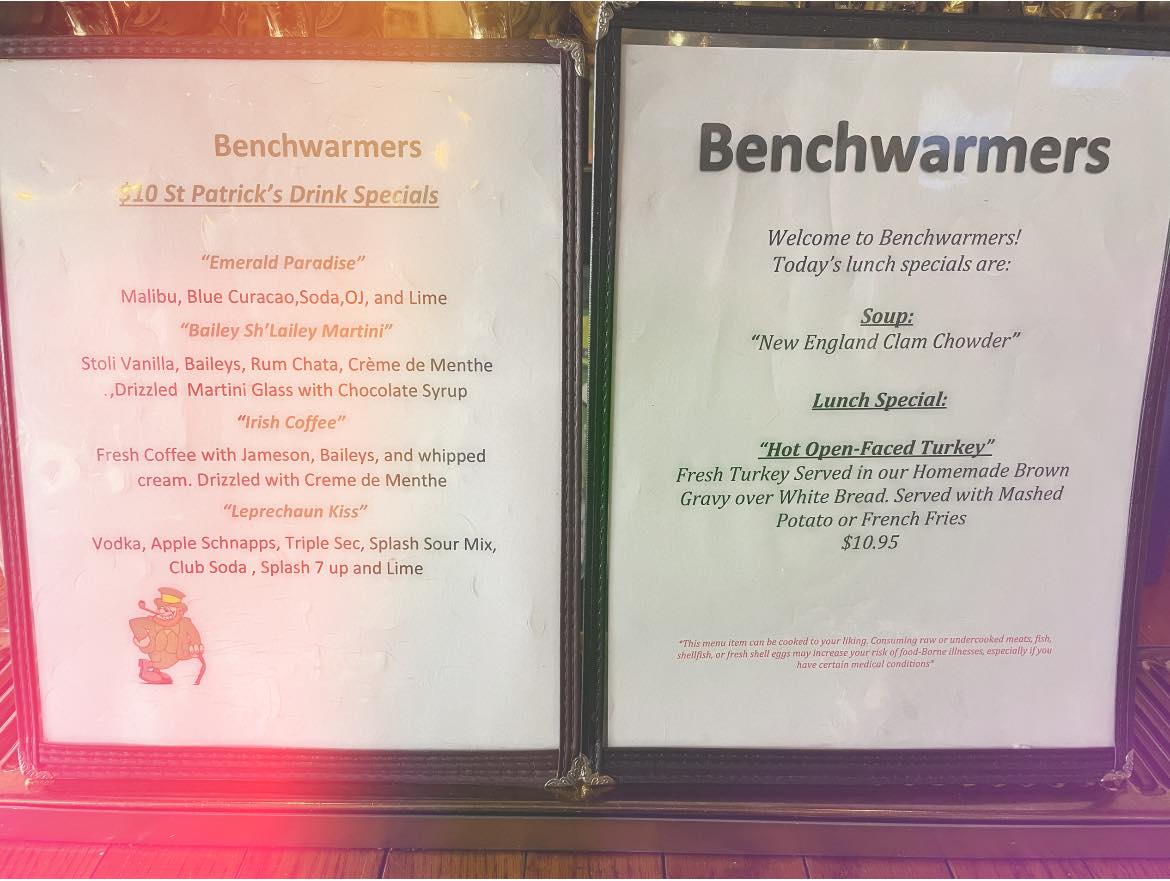 Benchwarmers
$10 St Patrick's Drink Specials
"Emerald Paradise"
Malibu, Blue Curacao,Soda,OJ, and Lime
"Bailey Sh'Lailey Martini"
Stoli Vanilla, Baileys, Rum Chata, Crème de Menthe
.,Drizzled Martini Glass with Chocolate Syrup
"Irish Coffee"
Fresh Coffee with Jameson, Baileys, and whipped
cream. Drizzled with Creme de Menthe
"Leprechaun Kiss"
Vodka, Apple Schnapps, Triple Sec, Splash Sour Mix,
Club Soda , Splash 7 up and Lime
Benchwarmers
Welcome to Benchwarmers!
Today's lunch specials are:
Soup:
"New England Clam Chowder"
Lunch Special:
"Hot Open-Faced Turkey"
Fresh Turkey Served in our Homemade Brown
Gravy over White Bread. Served with Mashed
Potato or French Fries
$10.95
*This menu item can be cooked to your liking. Consuming raw or undercooked meats, fish,
shellfish, or fresh shell eggs may increase your risk of food-Borne illnesses, especially if you
have certain medical conditions*